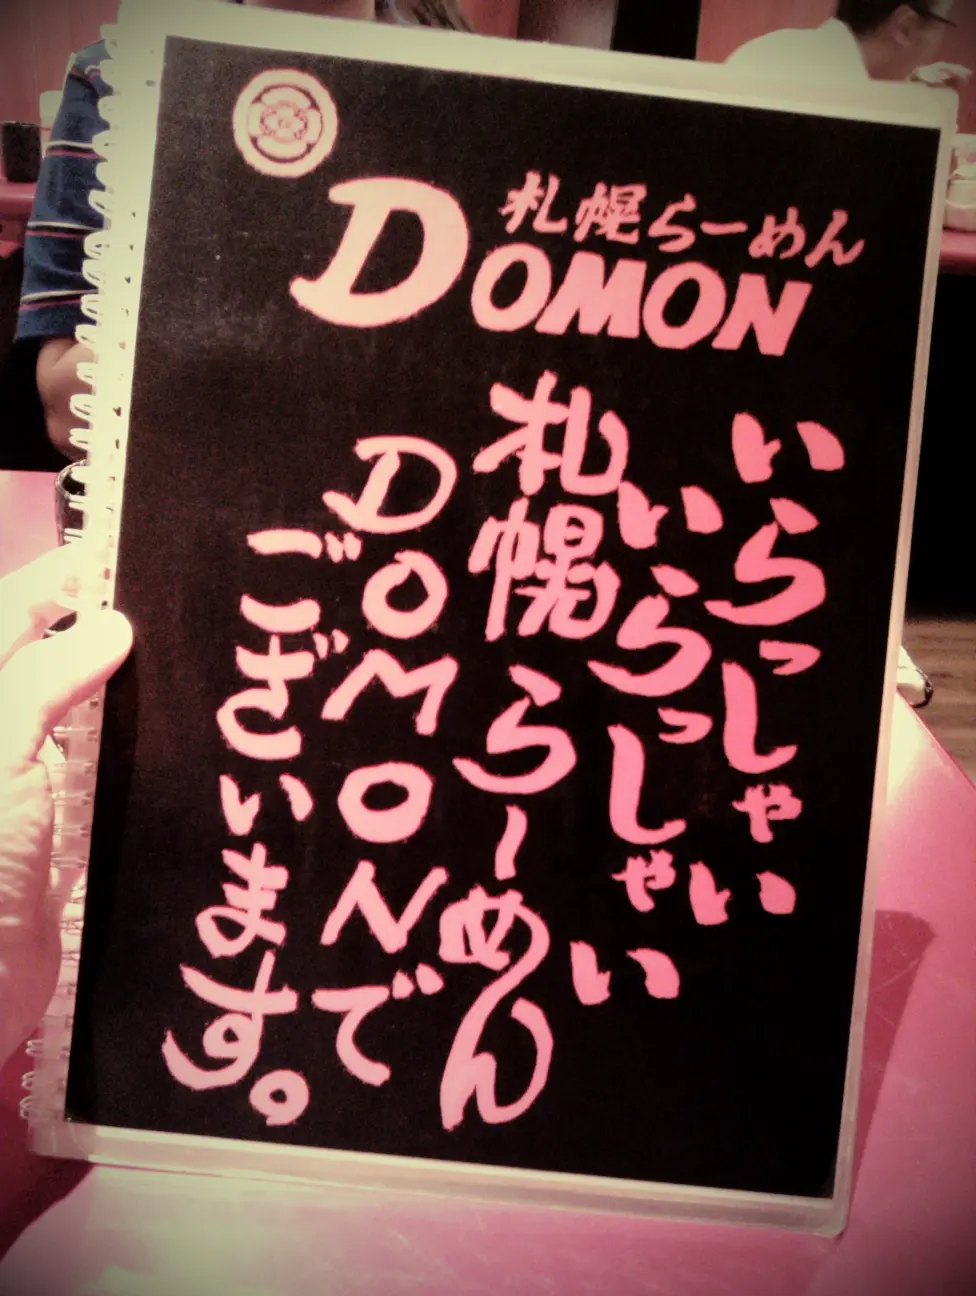 札幌らーめん
DOMON
いらっしゃい
いらっしゃい
札幌らーめん
DOMONで
ございます。